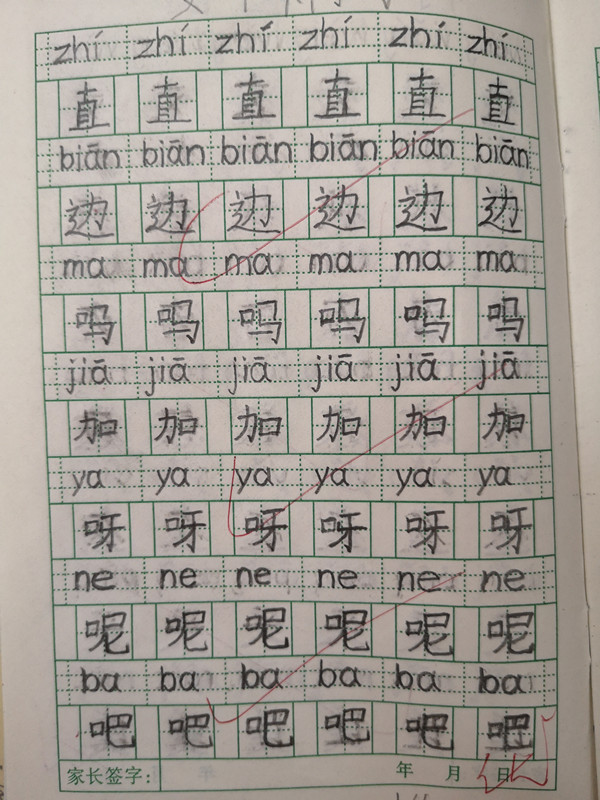 zhí zhí zhí zhí zhí zhí
直 直 直 直 直 直
biān biān biān biān biān biān
边 边 边 边 边 边
ma ma ma ma ma ma
吗 吗 吗 吗 吗 吗
jiā jiā jiā jiā jiā jiā
加 加 加 加 加 加
ya ya ya ya ya ya
呀 呀 呀 呀 呀 呀
ne ne ne ne ne ne
呢 呢 呢 呢 呢 呢
ba ba ba ba ba ba
吧 吧 吧 吧 吧 吧
家长签字: 年 月 日